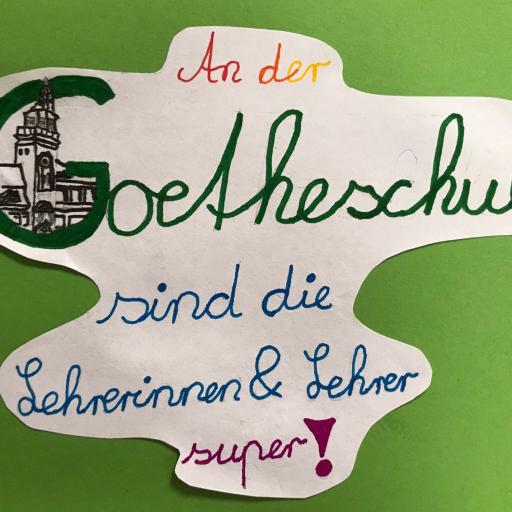 An der
Goetheschu
sind die
Lehrerinnen & Lehrer
super!